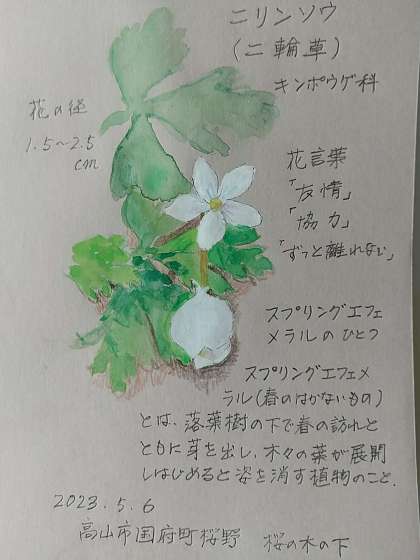 ニリンソウ
(二輪草)
キンポウゲ科
花の径
1.5〜2.5
cm
花言葉
「友情」
「協力」
「ずっと離れない」
スプリングエフェ
メラルのひとつ
スプリングエフェメ
ラル(春のはかないもの)
とは、落葉樹の下で春の訪れと
ともに芽を出し、木々の葉が展開
しはじめると姿を消す植物のこと.
2023.5.6
高山市国府町桜野 桜の木の下